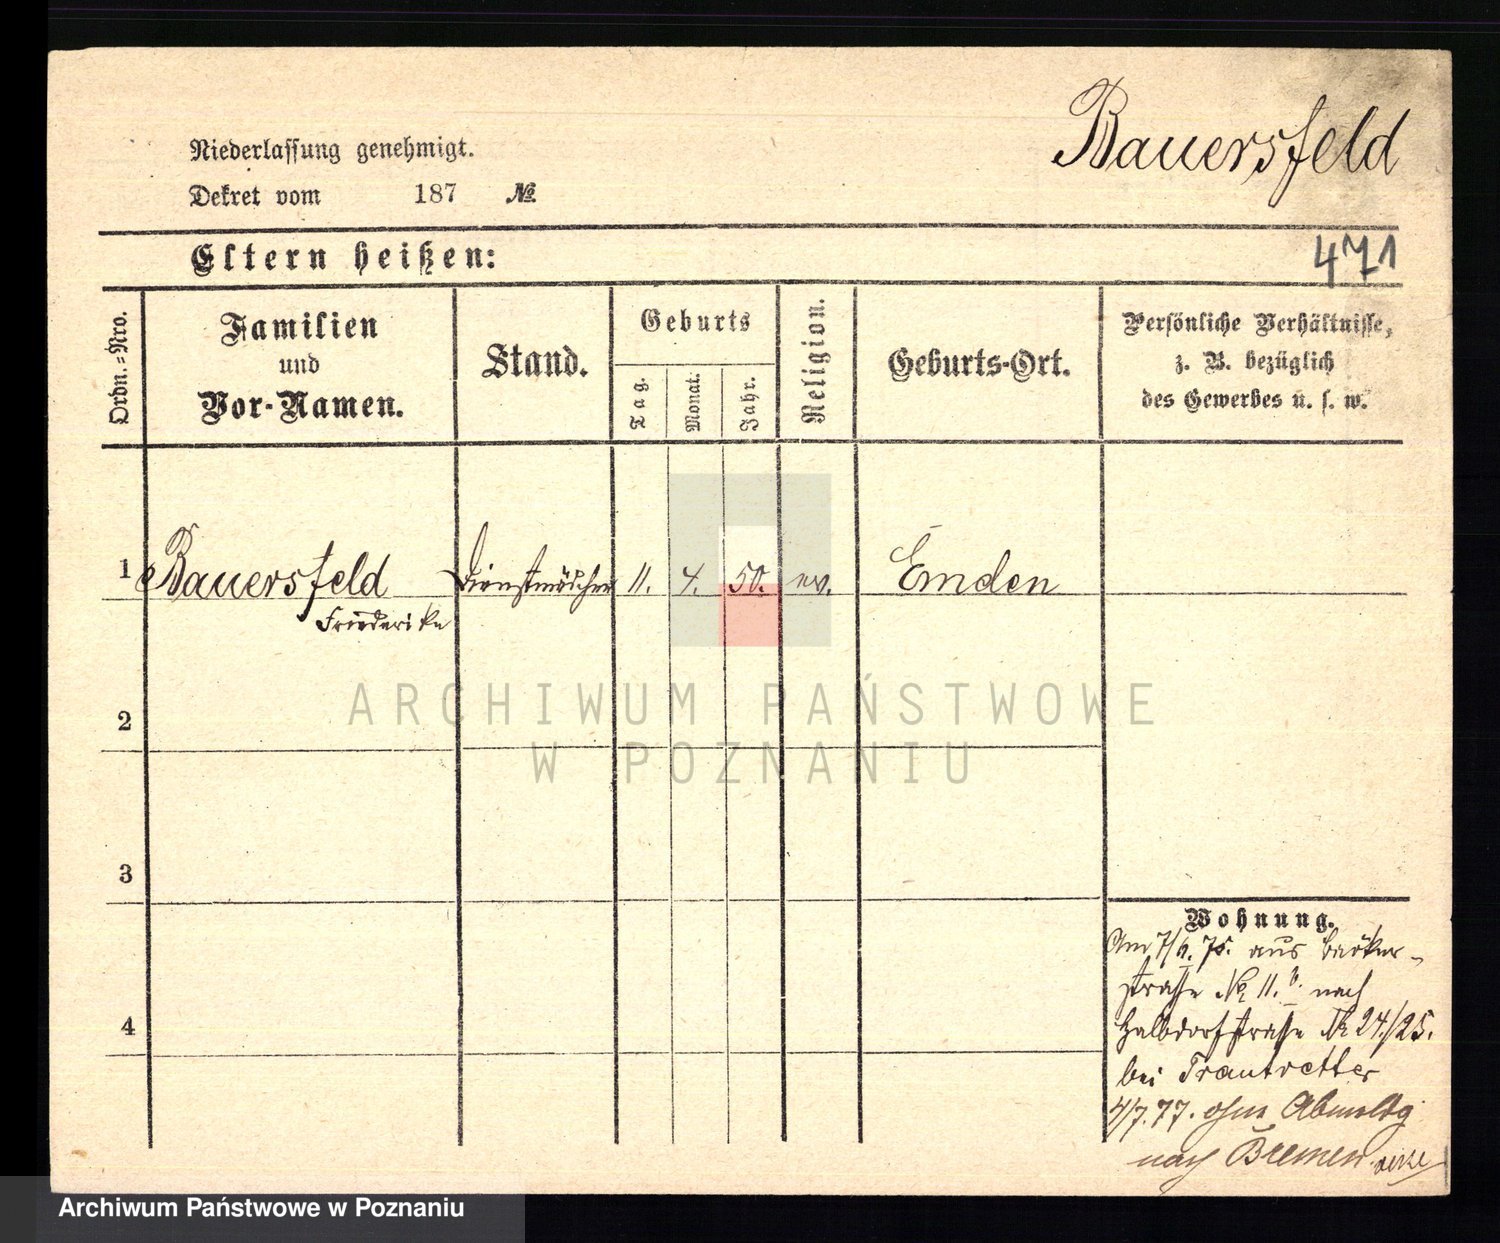 Bauersfeld
Niederlassung genehmigt.
Dekret vom 187 №
Eltern heißen:
471
Ordn.-Nro.
Familien
und
Vor-Namen.
Stand.
Geburts
Tag.
Monat.
Jahr.
Religion.
Geburts-Ort.
Persönliche Verhältnisse,
z. B. bezüglich
des Gewerbes u. s. w.
1 Bauersfeld Dienstmädchen 11. 4. 50. ev. Emden
Friederike
ARCHIWUM PAŃSTWOWE
W POZNANIU
2
3
4
Wohnung.
Am 75. aus Bäcker-
strasse No 11.b. nach
Halbdorfstrasse No 24./25.
bei Trautvetter
4/7.77. ohne Abmeldg
nach Bremen
Archiwum Państwowe w Poznaniu